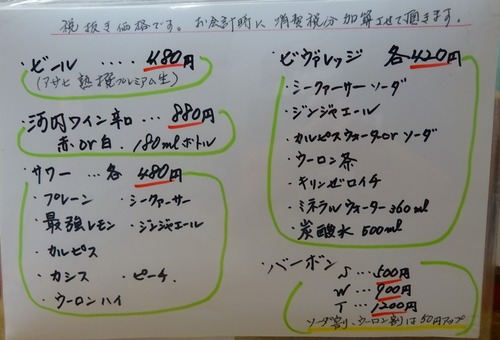 税抜き価格です。お会計時に消費税分加算させて頂きます。
・ビール ‥‥ 480円
(アサヒ 熟撰プレミアム生)
・河内ワイン辛口 … 880円
赤or白. 180mlボトル
・サワー … 各 480円
・プレーン ・シークァーサー
・最強レモン ・ジンジャエール
・カルピス
・カシス ・ピーチ
・ウーロンハイ
・ビヴァレッジ 各420円
・シークァーサーソーダ
・ジンジャエール
・カルピスウォーターorソーダ
・ウーロン茶
・キリンゼロイチ
・ミネラルウォーター360ml
・炭酸水 500ml
・バーボン
S … 500円
W … 900円
T … 1200円
ソーダ割り、ウーロン割りは50円アップ